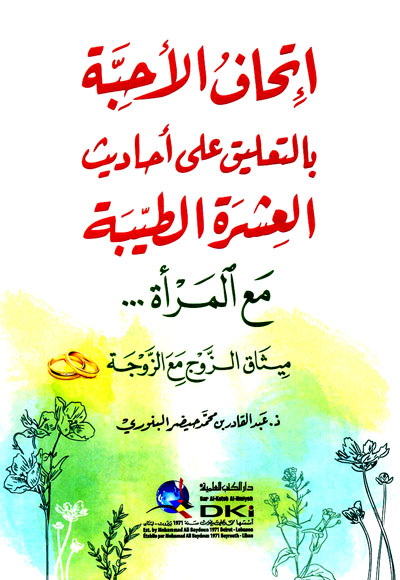 إتحاف الأحبَّة
بالتعليق على أحاديث
العِشرَة الطيّبَة
مَع ٱلمَرْأة ...
ميثَاق الزَّوج مَع الزَّوجَة
ذ. عبد القادر بن محمد حيضر البنوري
دار الكتب العلمية
Dar Al-Kotob Al-Ilmiyah
DKi
أسسها محمد علي بيضون سنة 1971 بيروت - لبنان
Est. by Mohammad Ali Baydoun 1971 Beirut - Lebanon
Établie par Mohamad Ali Baydoun 1971 Beyrouth - Liban